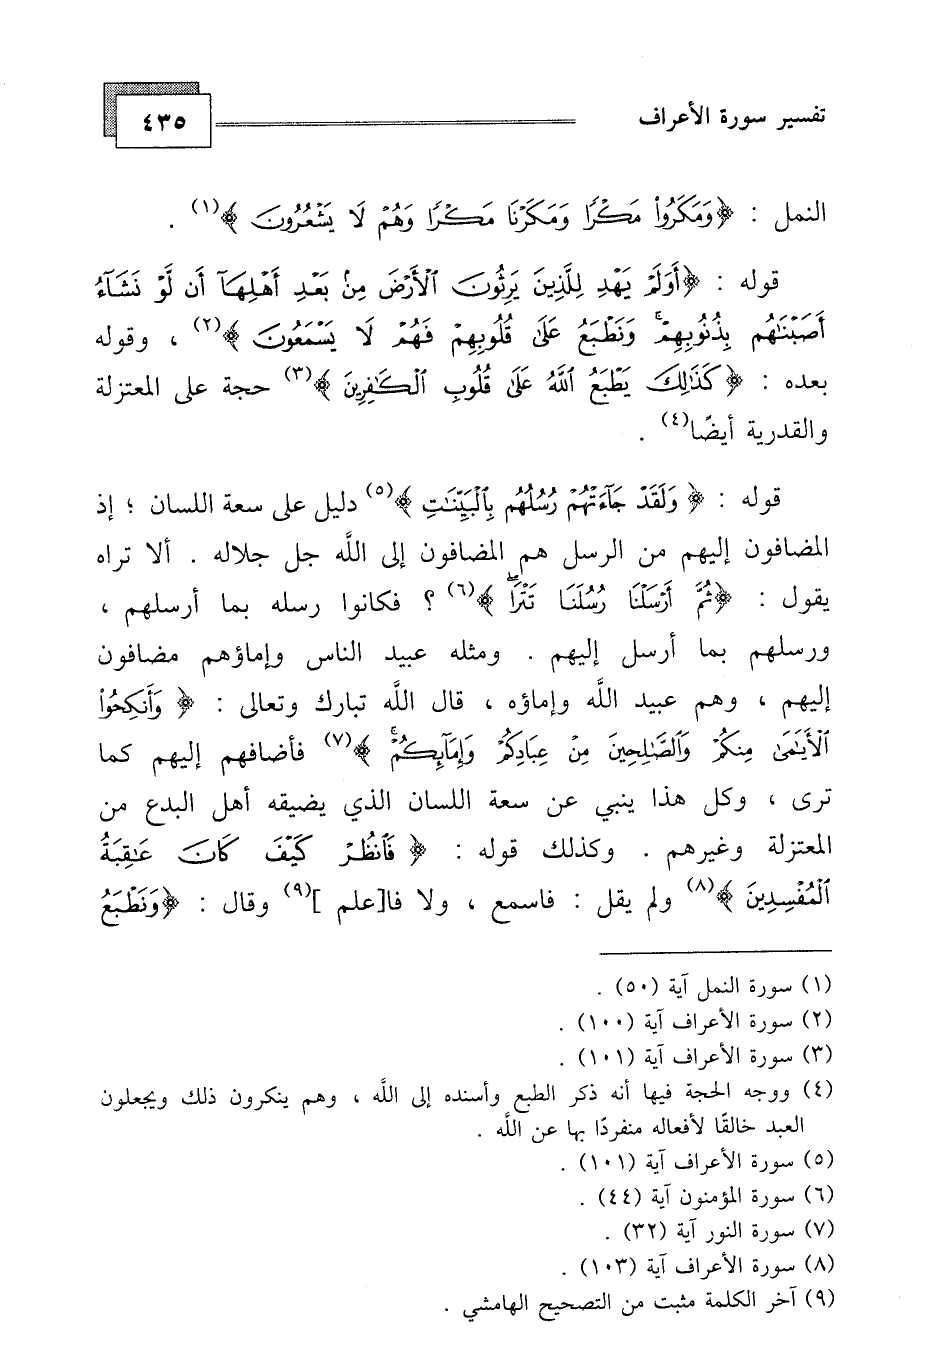 تفسير سورة الأعراف ٤٣٥
النمل : ﴿وَمَكَرُوا۟ مَكْرًا وَمَكَرْنَا مَكْرًا وَهُمْ لَا يَشْعُرُونَ ﴾(١) .
قوله : ﴿أَوَلَمْ يَهْدِ لِلَّذِينَ يَرِثُونَ ٱلْأَرْضَ مِنۢ بَعْدِ أَهْلِهَآ أَن لَّوْ نَشَآءُ
أَصَبْنَـٰهُم بِذُنُوبِهِمْ ۚ وَنَطْبَعُ عَلَىٰ قُلُوبِهِمْ فَهُمْ لَا يَسْمَعُونَ ﴾(٢) ، وقوله
بعده : ﴿كَذَٰلِكَ يَطْبَعُ ٱللَّهُ عَلَىٰ قُلُوبِ ٱلْكَـٰفِرِينَ ﴾(٣) حجة على المعتزلة
والقدرية أيضًا(٤) .
قوله : ﴿ وَلَقَدْ جَآءَتْهُمْ رُسُلُهُم بِٱلْبَيِّنَـٰتِ ﴾(٥) دليل على سعة اللسان ؛ إذ
المضافون إليهم من الرسل هم المضافون إلى اللَّه جل جلاله . ألا تراه
يقول : ﴿ثُمَّ أَرْسَلْنَا رُسُلَنَا تَتْرَا ۖ ﴾(٦) ؟ فكانوا رسله بما أرسلهم ،
ورسلهم بما أرسل إليهم . ومثله عبيد الناس وإماؤهم مضافون
إليهم ، وهم عبيد اللَّه وإماؤه ، قال اللَّه تبارك وتعالى : ﴿ وَأَنكِحُوا۟
ٱلْأَيَـٰمَىٰ مِنكُمْ وَٱلصَّـٰلِحِينَ مِنْ عِبَادِكُمْ وَإِمَآئِكُمْ ۚ ﴾(٧) فأضافهم إليهم كما
ترى ، وكل هذا ينبي عن سعة اللسان الذي يضيقه أهل البدع من
المعتزلة وغيرهم . وكذلك قوله : ﴿ فَٱنظُرْ كَيْفَ كَانَ عَـٰقِبَةُ
ٱلْمُفْسِدِينَ ﴾(٨) ولم يقل : فاسمع ، ولا فا[علم ](٩) وقال : ﴿وَنَطْبَعُ
(١) سورة النمل آية (٥٠) .
(٢) سورة الأعراف آية (١٠٠) .
(٣) سورة الأعراف آية (١٠١) .
(٤) ووجه الحجة فيها أنه ذكر الطبع وأسنده إلى اللَّه ، وهم ينكرون ذلك ويجعلون
العبد خالقًا لأفعاله منفردًا بها عن اللَّه .
(٥) سورة الأعراف آية (١٠١) .
(٦) سورة المؤمنون آية (٤٤) .
(٧) سورة النور آية (٣٢) .
(٨) سورة الأعراف آية (١٠٣) .
(٩) آخر الكلمة مثبت من التصحيح الهامشي .